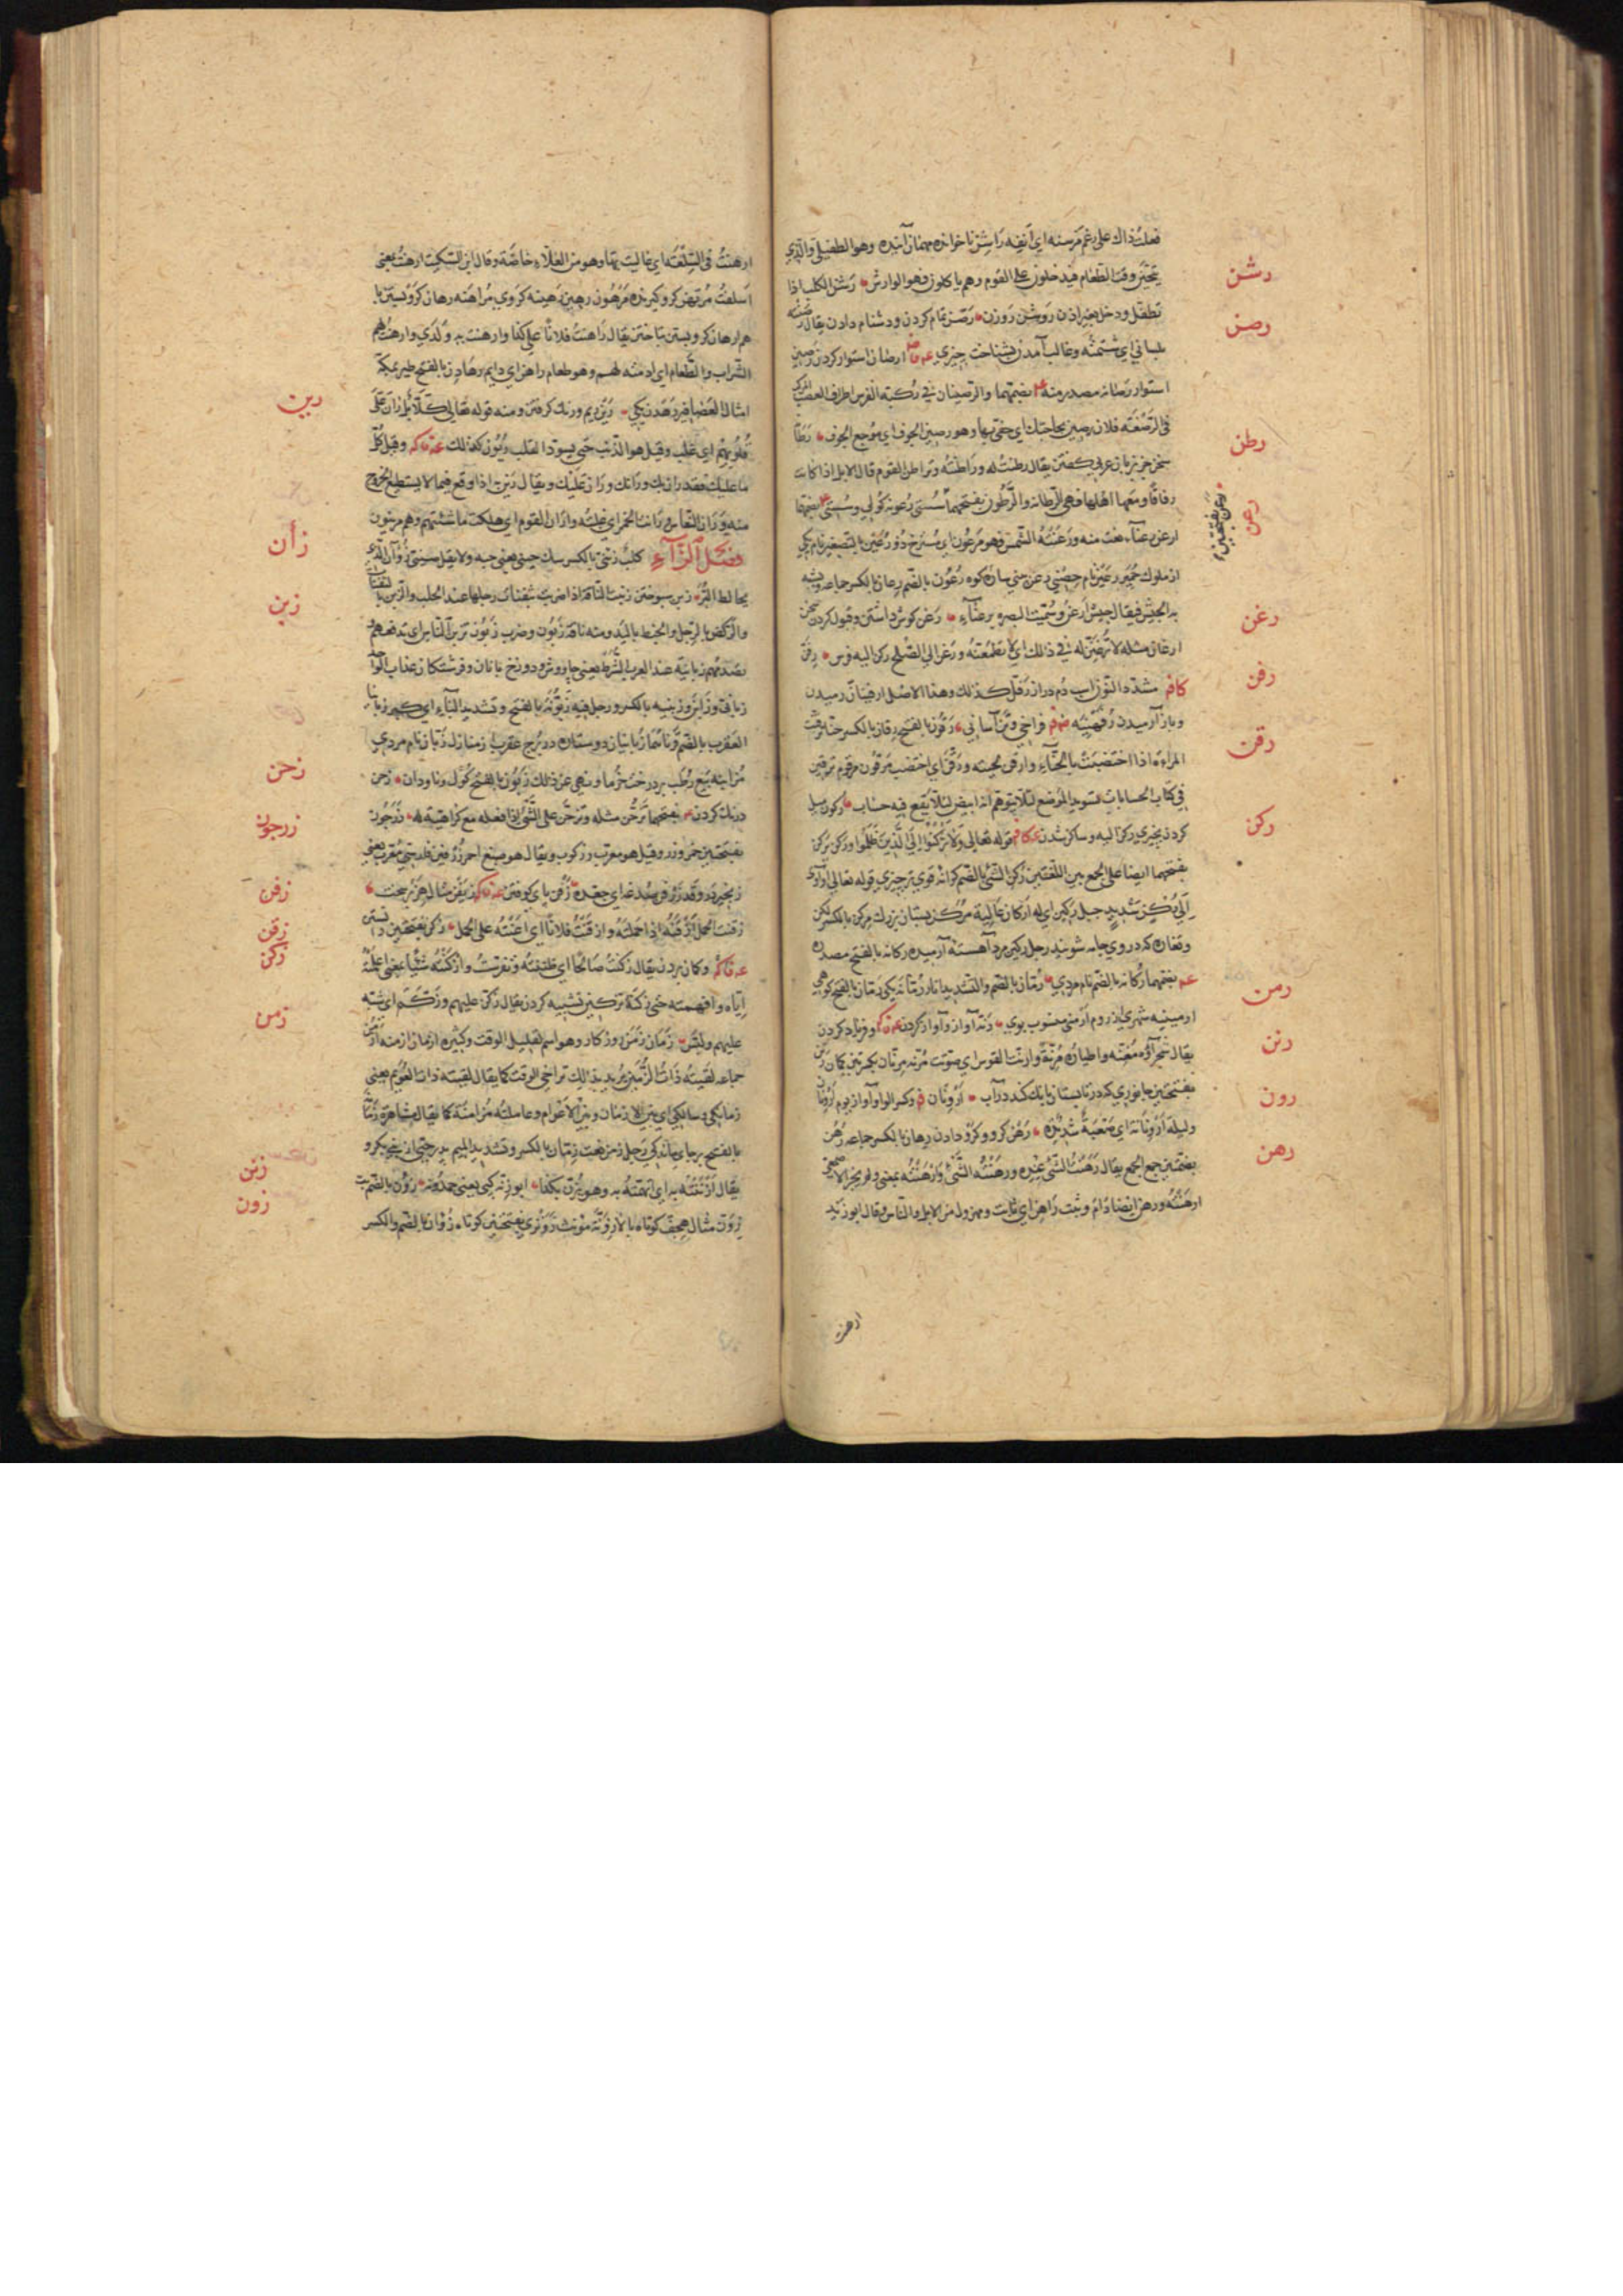 فعلت ذاك على رغم مرسنه اي انفه راشن ناخوانده مهمان آينده وهو الطفيلي والذي
يتحين وقت الطعام فيدخلون على القوم وهم ياكلون فهو الوارش رشن الكلب اذا
رشن
تطفل ودخل بغير اذن روشن روزن رصن تمام كردن ودشنام دادن يقال رصنته
رصن
بلساني اي شتمته وغالب آمدن بشناخت چيزي ارصان استوار كردن رصين
استوار رصانه مصدر منه بضمهما والرصينان في ركبة الفرس اطراف العصب المركب
في الرضفة فلان رصين بحاجتك اي حفي بها وهو رصين الجوف اي موجع الجوف
رطن
سخن جز بزبان عربي كفتن يقال رطنت له وراطنته وتراطن القوم قال الابل اذا كانت
رفاقا ومعها اهلها فهي الرطانة والرطون بفتحهما سستي رعونة كولي وسستي بضمهما
رعن
ارعن رعناء نعت منه ورعنته الشمس فهو مرعون اي مسترخ ذو رعين بالتصغير نام يكي
از ملوك حمير رعين نام حصني رعن بيني ساره كوه رعون بالضم رعان بالكسر جماعه ويشبه
به الجيش فيقال جيش ارعن وسميت البصره برعناء رغن كوش داشتن وقبول كردن سخن
رغن
ارغان مثله لا ترغنن له في ذلك اي لا تطمعنه ورغن الى الصلح ركن اليه فرس رفن
رفن
مشددا النون اسب دم دراز رفل كذلك وهذا الاصل ارفينان رميدن
وباز آرميدن رفهنيه فراخي وتن آساني رقون بالفتح رقان بالكسر حنا ترقنت
رقن
المراءة اذا اختضبت بالحناء وارقن لحيته ورقن اي اختضب مرقون مرقوم ترقين
في كتاب الحسابات تسويد الموضع لئلا يتوهم انه ابيض لئلا يقع فيه حساب ركون ميل
ركن
كردن بچيزي ركن اليه وساكن شدن قوله تعالى ولا تركنوا الى الذين ظلموا وركن يركن
بفتحهما ايضا على الجمع بين اللغتين ركن الشئ بالضم كرانه قوي تر چيزي قوله تعالى او آوي
الى ركن شديد جبل ركين اي له اركان عالية مركن بستان بزرك مركن بالكسر لكن
وتغاره كه در وي جامه شويند رجل ركين مرد آهسته آرميده ركانه بالفتح مصدره
بفتحهما ركانه بالضم نام مردي رمان بالضم والتشديد انار رمانة يكي رمان بالفتح كوهي
رمن
ارمينيه شهري از روم ارمني منسوب بوي رنه آواز وآواز كردن وفرياد كردن
رنن
يقال شجراء مغنه واطياره مرنة وارنت القوس اي صوتت مرنه مرنان بكسرتين كمان رنن
بفتحتين جانوري كه در تابستان بانك كند در آب ارونان وكسر الواو آواز يوم ارونان
رون
وليلة ارونانة اي صعبة شديدة رهن كرو وكرو دادن رهان بالكسر جماعه رهن
رهن
بضمتين جمع الجمع يقال رهنت الشئ عنده ورهنته الشئ وارهنته بمعنى ولم يجز الاصمعي
ارهنته ورهن ايضا دام وثبت راهن اي ثابت ومهزول من الابل والناس وقال ابو زيد
ارهنت
ارهنت في السلعة اي غاليت بها وهو من الغلاء خاصة وقال ابن السكيت ارهنت بمعنى
اسلفت مرتهن كرو كيرنده مرهون رهين رهينه كروي مراهنه رهان كرو بستن با
هم ارهان كرو بستن باختن يقال راهنت فلانا على كذا وارهنت به ولدي وارهنت لهم
الشراب والطعام اي ادمته لهم وهو طعام راهن اي دايم رهادن بالفتح طير بمكة
رين
امثال العصافير رهدنة يكي رين ريم وزنك كرفتن ومنه قوله تعالى كلا بل ران على
قلوبهم اي غلب وقيل هو الذنب حتى يسود القلب ريون كذلك وقيل كل
ما غلبك فقد ران بك ورانك وران عليك ويقال رين به اذا وقع فيما لا يستطيع الخروج
منه وران النعاس ورانت الخمر اي غلبته واران القوم اي هلكت ماشيتهم وهم مرينون
زأن
فصل الزآء كلب زئني بالكسر سك چيني يعني جبه ولا يقل سيني زؤان الذي
يخالط البر زبن سپوختن زبنت الناقة اذا ضربت بثفنات رجلها عند الحلب والزبن بالثفنات
زبن
والركض بالرجل والخبط باليد ومنه ناقة زبون وحرب زبون تزبن الناس اي تدفعهم
تصدمهم زبانيه عند العرب الشرط يعني چاووش ودوزخ بانان وفرشتكان عذاب الواحد
زباني وزابن وزبنيه بالكسر ورجل فيه زبونة بالفتح وتشديد الباء اي كبر زبانيا
العقرب بالضم وناهما زبانيان دو ستاره در برج عقرب از منازل زبان نام مردي
مزابنه بيع رطب بر درخت خرما ونهي عن ذلك زبون بالفتح كول وناودان زحن
زحن
درنك كردن بفتحهما تزحن مثله وتزحن على الشئ اذا فعله مع كراهية له زرجون
زرجون
بفتحتين خمر ورز وقيل هو معرب زركون ويقال هو صبغ احمر زرفين فلدچين معرب يعني
زنجير در وقد زرفن صدغه اي جعده زفن پاي كوفتن زيفن مثال هزبر سخت
زفن
زقنت الحمل ازقنه اذا حملته وازقنت فلانا اي اعنته على الحمل زكن بفتحتين دانستن
زقن
زكن
وكان بردن يقال زكنت صالحا اي ظننته وتفرست وازكنته شيئا بمعنى اعلمته
اياه وافهمته حتى زكنه تزكين تشبيه كردن يقال زكن عليهم وزكم اي شبه
عليهم ولبس زمان زمن روزكار وهو اسم لقليل الوقت وكثيره ازمان ازمنه ازمن
زمن
جماعه لقيته ذات الزمين يريد بذالك تراخي الوقت كما يقال لقيته ذات العويم يعني
زمانكي وسالكي اي بين الازمان وبين الاعوام وعاملته مزامنة كما يقال مشاهرة زمانة
بالفتح برجاي ماندكي رجل زمن نعت زمان بالكسر وتشديد الميم پدر حيي از بني بكر و
زنن
يقال ازننته به اي اتهمته به وهو يزن بكذا ابو زنة كپي يعني حمدونه زون بالضم بت
زون
زون مثال هجف كوتاه بالا زونة مؤنث زونزي بفتحتين كوتاه زؤان بالضم والكسر